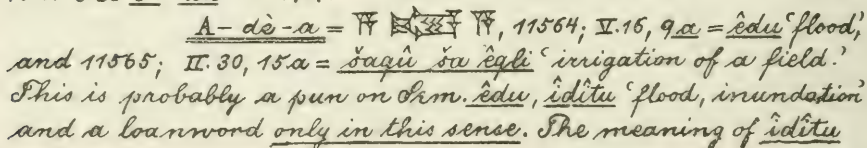 A-dè-a = 𒀀 𒉈 𒀀, 11564; V. 16, 9a = êdu ‘flood,’
and 11565; II. 30, 15a = šaqû ša êqli ‘irrigation of a field.’
This is probably a pun on Sem. êdu, îdîtu ‘flood, inundation’
and a loanword only in this sense. The meaning of îdîtu